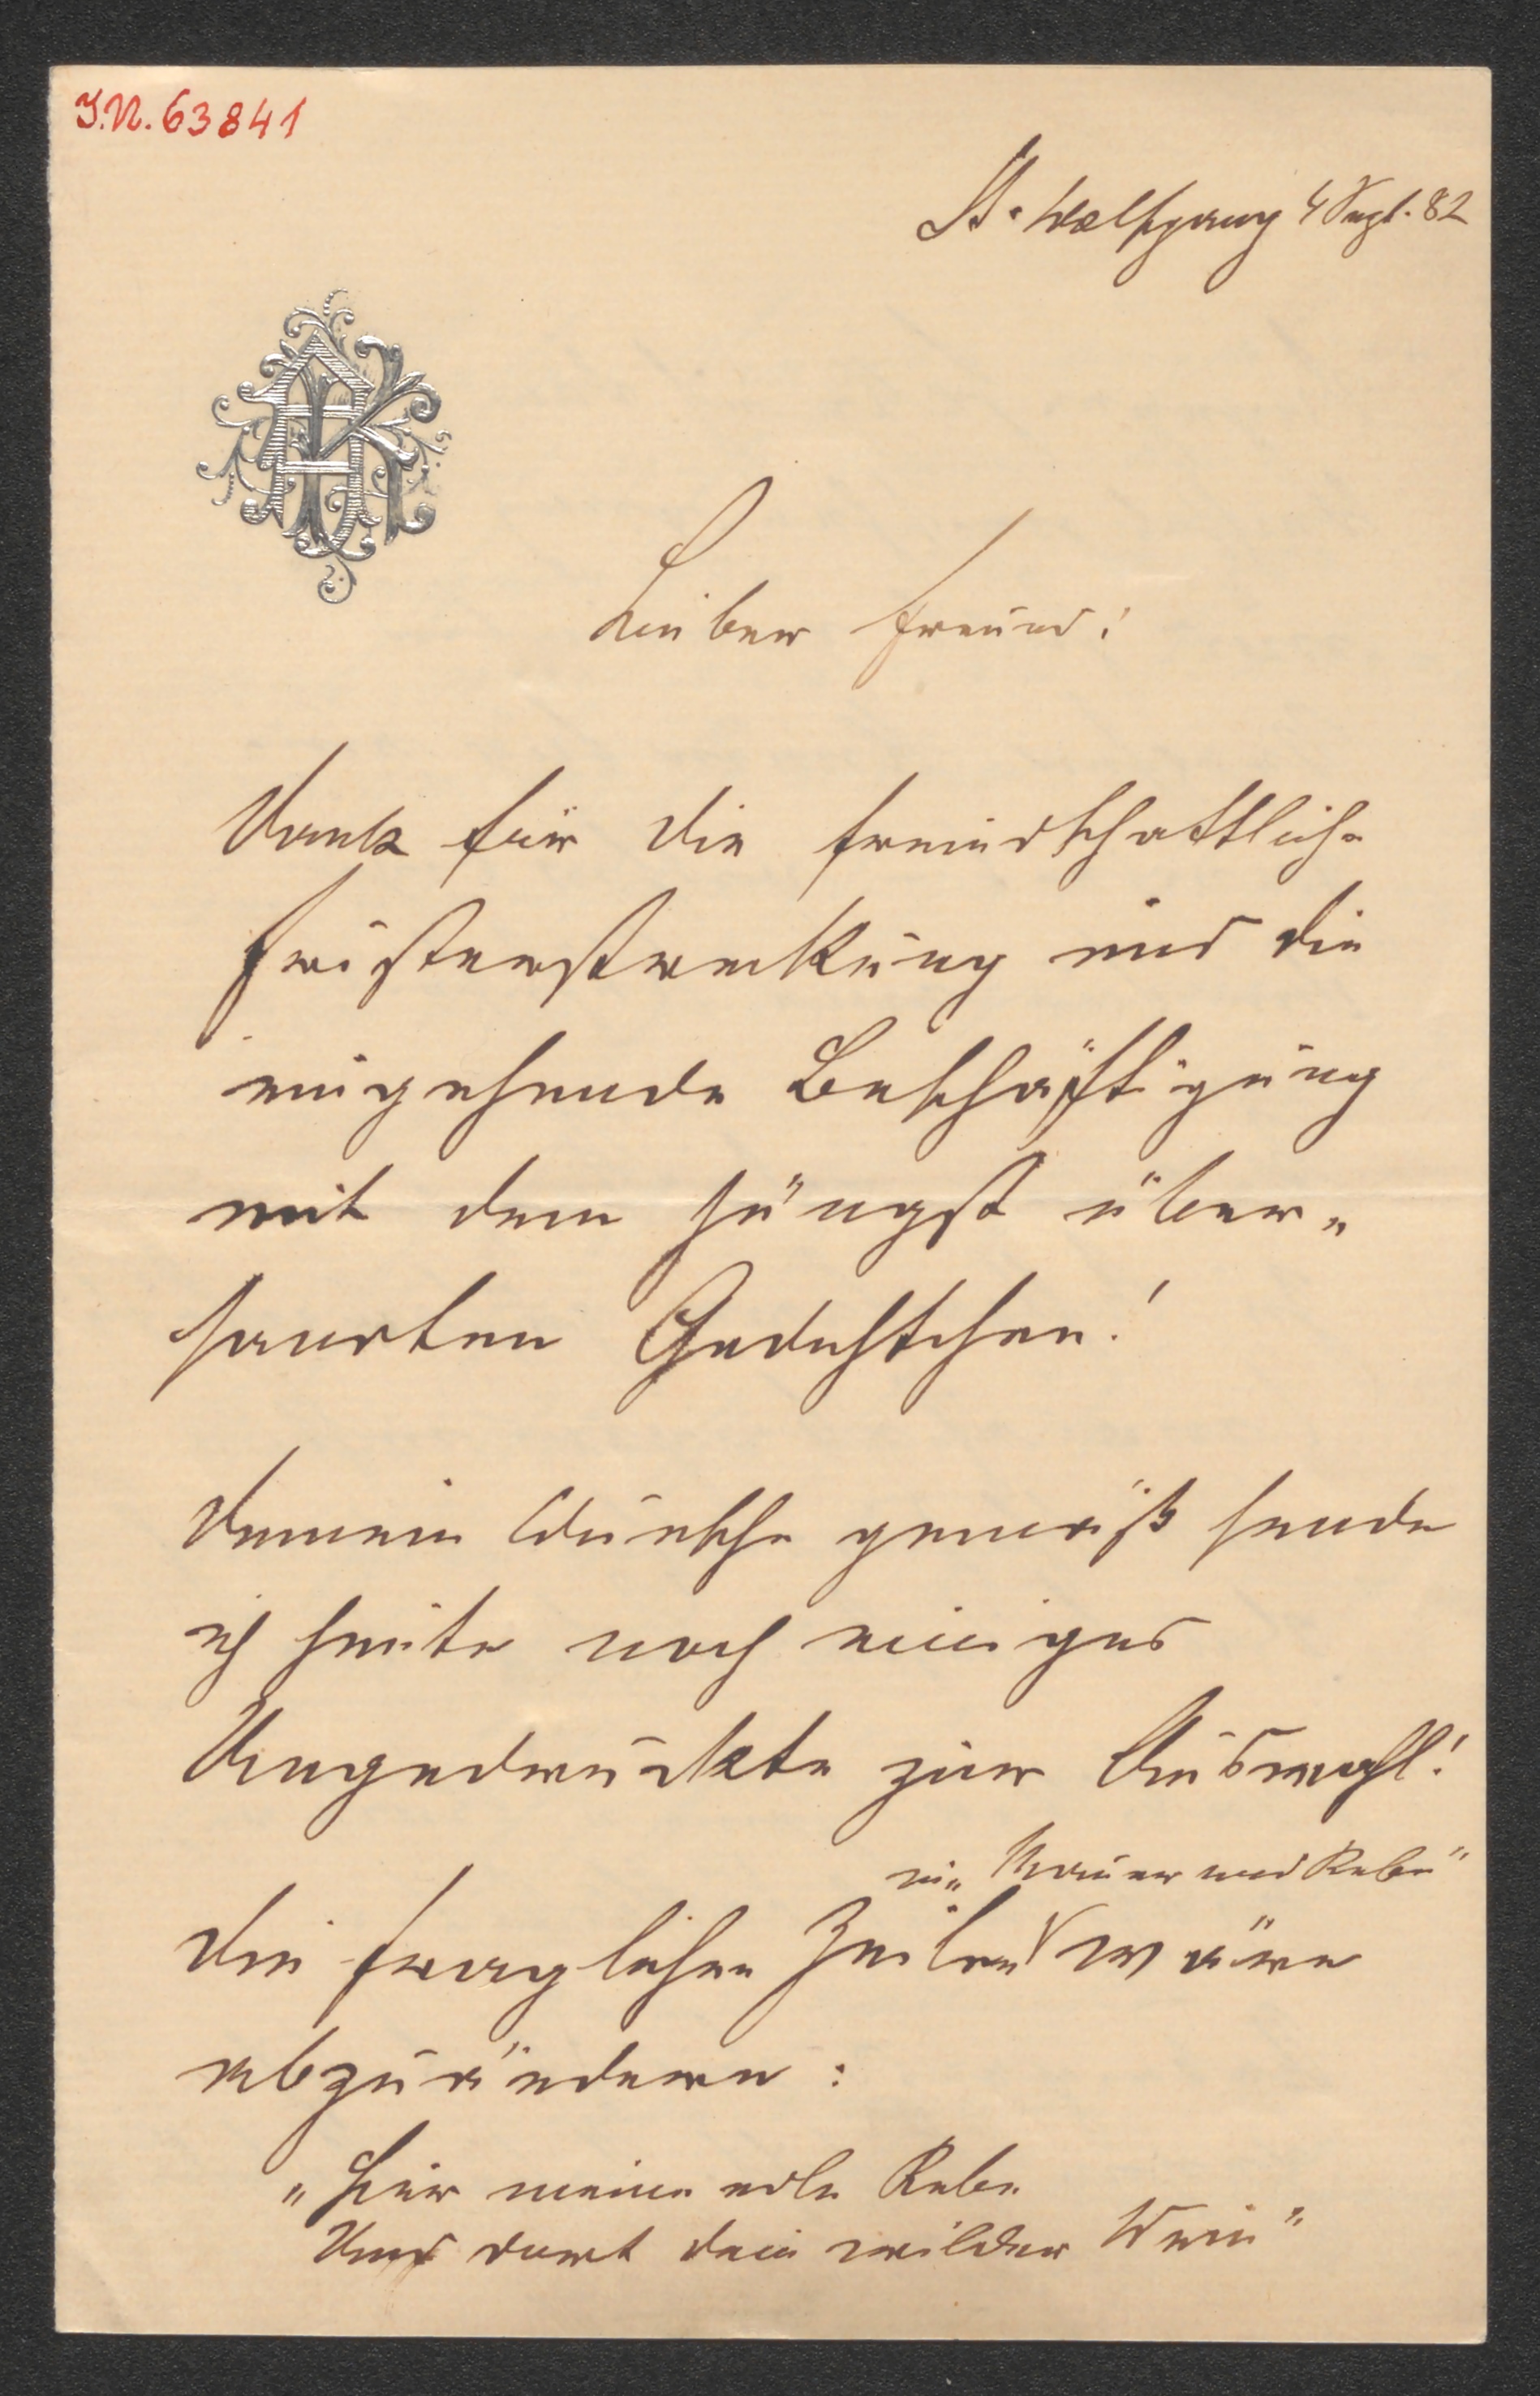 I.N. 63841
St. Wolfgang 4 Sept. 82
AK
Lieber Freund!
Dank für die freundschaftliche
Fristerstreckung und die
eingehende Beschäftigung
mit dem jüngst über„
sandten Gedichtchen!
Deinem Wunsche gemäß sende
ich heute noch einiges
Ungedruckte zur Auswahl!
in „Mauer und Rebe"
Die fraglichen Zeilen wären
abzuändern:
„Hier meine edle Rebe
Und dort dein wilder Wein"